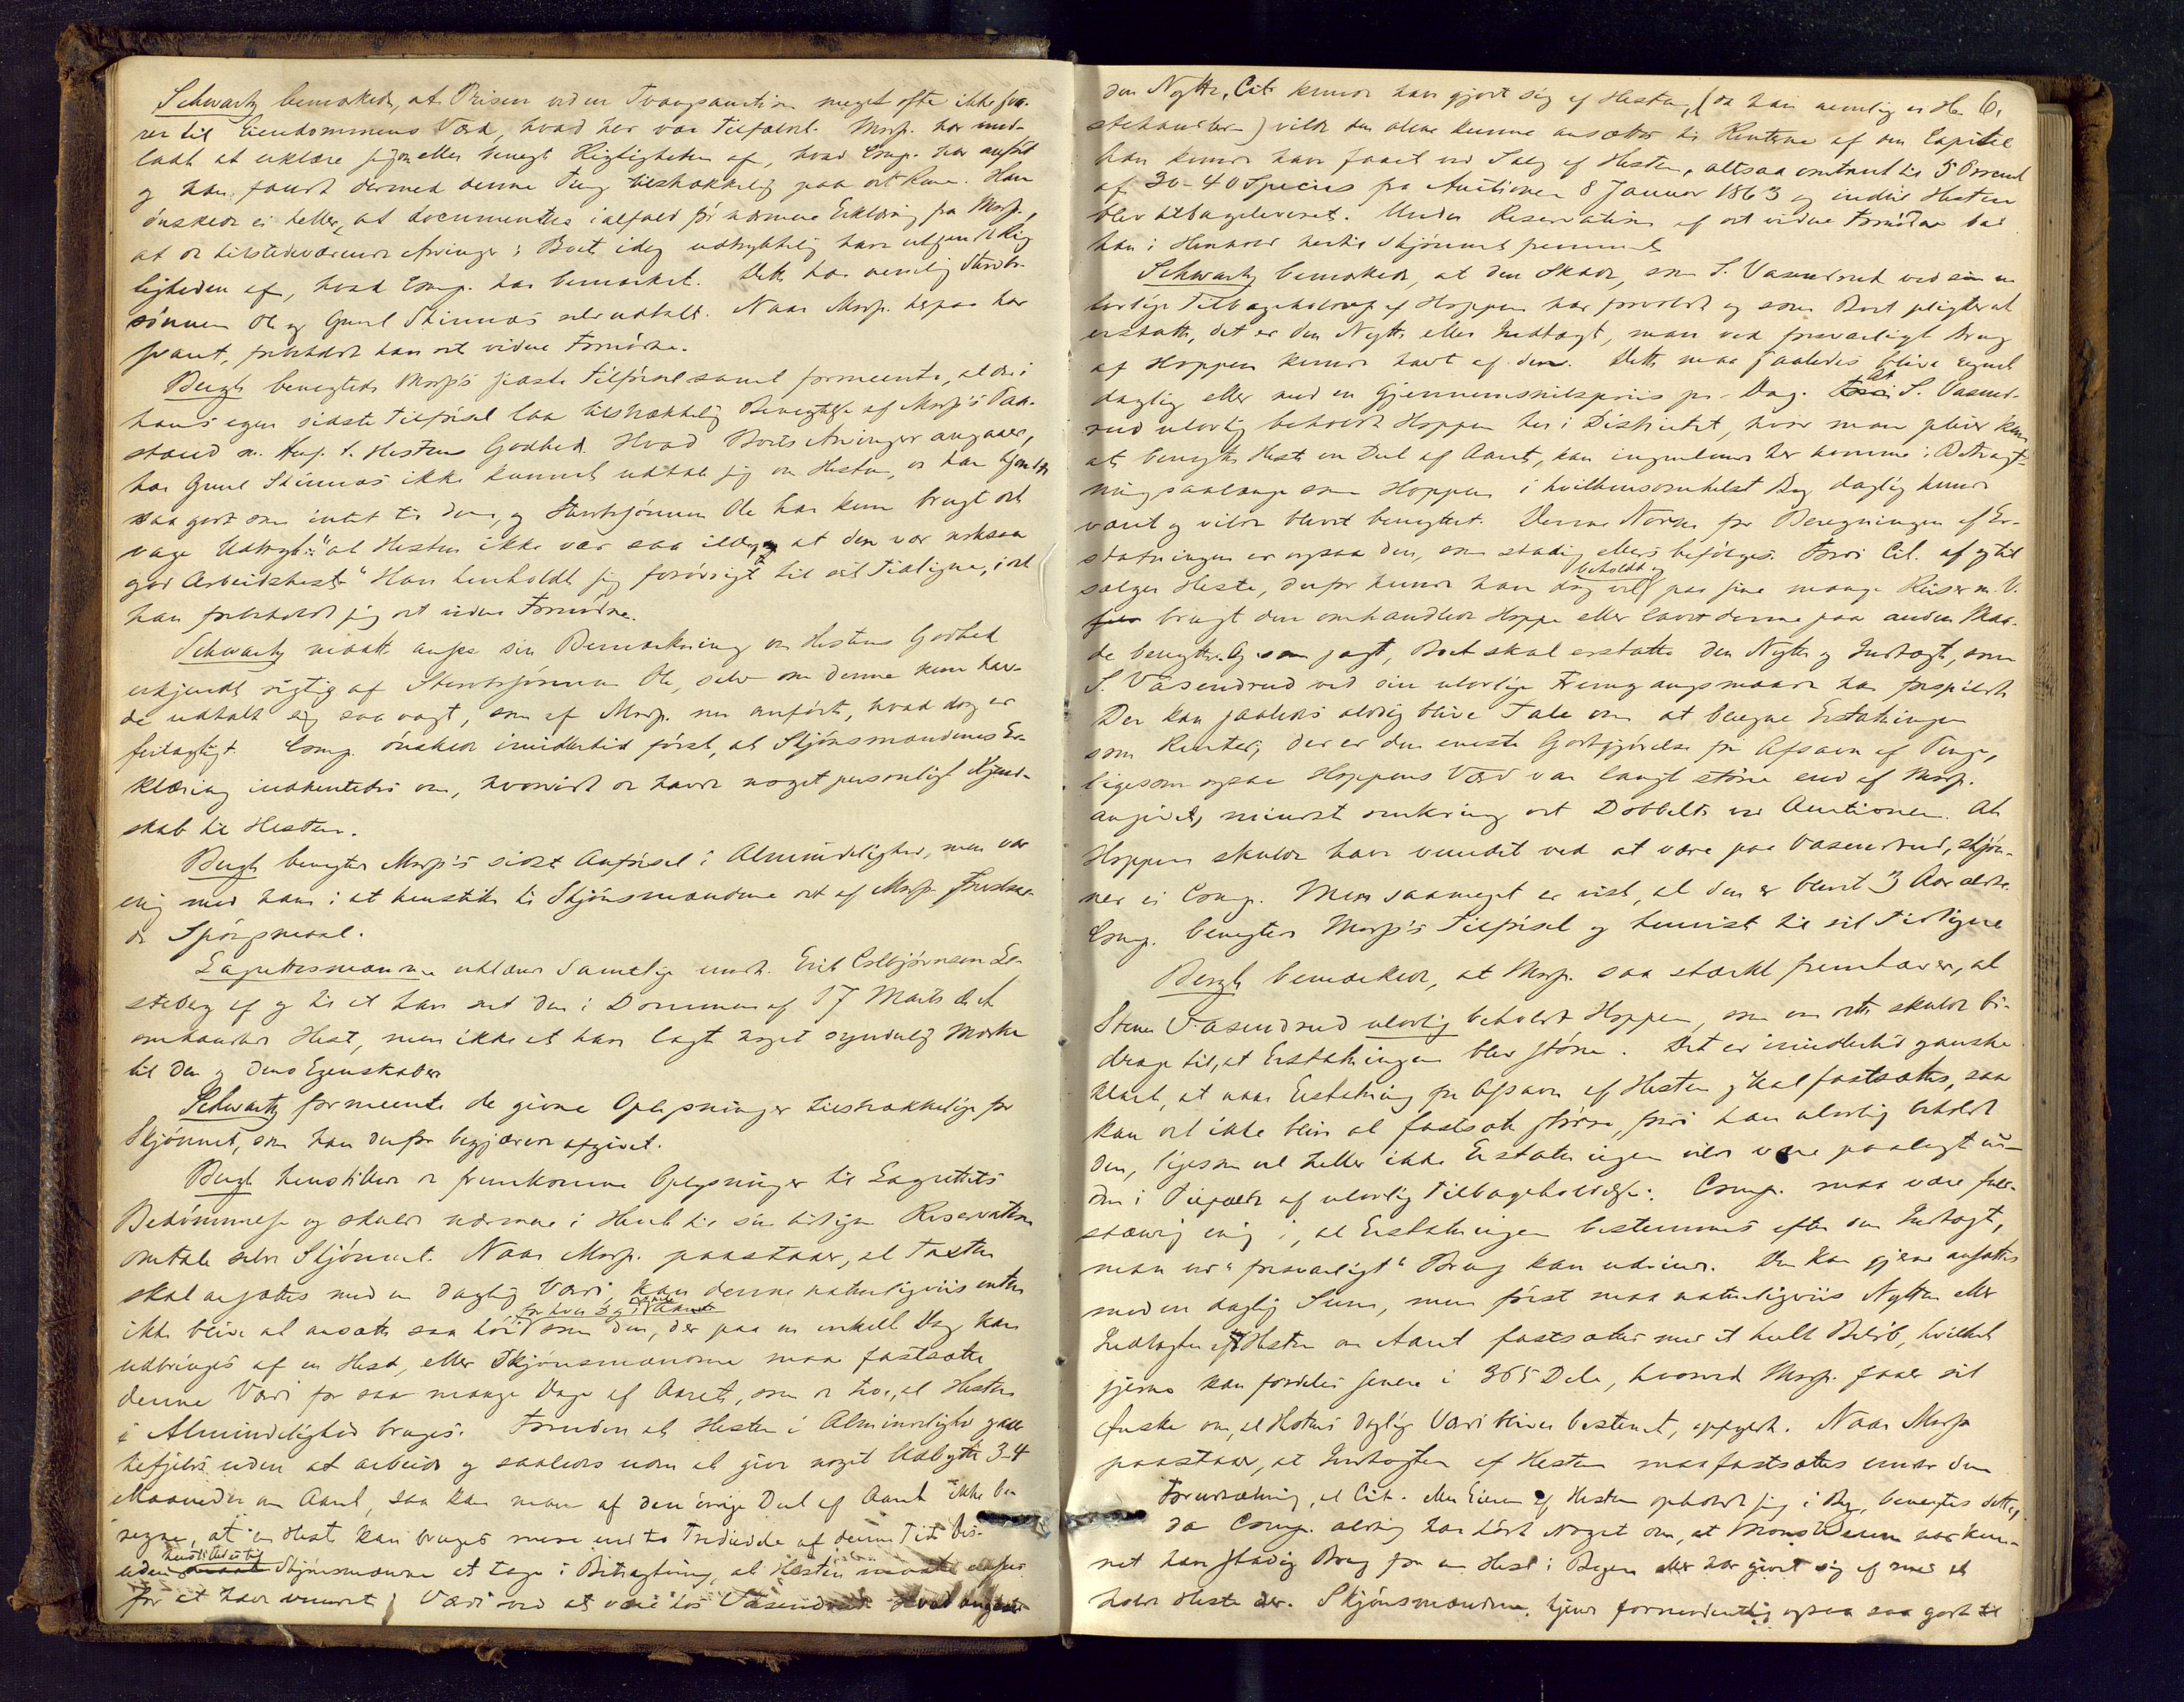 Schwartz bemærkede, at Prisen ved en Tvangsauction meget ofte ikke sva-
rer til Eiendommens Værd, hvad her var Tilfældet. Mosp. har und-
ladt at erklære sig om eller benegt Rigtigheden af, hvad Comp. har anført
og han fandt dermed denne Ting tilstrækkelig paa det Rene. Han
ønskede ei heller, at documentes ialfald før nærmere Erklæring fra Mosp.,
at de tilstedeværende Arvinger i Boet idag udtrykkelig have vedgaaet Rig-
tigheden af, hvad Comp. har bemærket. Dette har nemlig Stervbo-
sønnen Ole og Gunl Skinnes selv udtalt. Naar Mosp. herpaa har
svaret, forbeholdt han det videre Fornødne.
Bergh benegtede Mosp's sidste Tilførsel samt formeente, at der i
hans egen sidste Tilførsel laa tilstrækkelig Benegtelse af Mosp's Paa-
stand m. Hsy. t. Hestens Godhed. Hvad Boets Arvinger angaaer,
har Gunl Skinnes ikke kunnet udtale sig om Hesten, da han kjendte
saa godt som intet til den, og Stervbosønnen Ole har kun brugt det
vage Udtryk: "at Hesten ikke var saa ilde, og at den var noksaa
god Arbeidshest" Han henholdt sig forøvrigt til sit Tidligere, idet
han forbeholdt sig det videre Fornødne.
Schwartz maatte ansee sin Bemærkning om Hestens Godhed
erkjendt rigtig af Stervbosønnen Ole, selv om denne kun hav-
de udtalt sig saa vagt, som af Mosp. nu anført, hvad dog er
feilagtigt. Comp. ønskede imidlertid først, at Skjønsmændenes Er-
klæring indhentedes om, hvorvidt de havde noget personligt Kjend-
skab til Hesten.
Bergh benegter Mosp's sidste Anførsel i Almindelighed, men var
enig med ham i at henstille til Skjønsmændene det af Mosp. fremsat-
te Spørgsmaal.
Lagrettesmændene erklærer samtlige undt. Erik Colbjørnsen
af og til at have set den i Dommen af 17 Marts d. A.
omhandlede Hest, men ikke at have lagt noget synderlig Mærke
til den og dens Egenskaber
Schwartz formeente de givne Oplysninger tilstrækkelige for
Skjønnet, som han derfor begjærede afgivet.
Bergh henstillede de fremkomne Oplysninger til Lagrettets
Bedømmelse og skulde nærmere i Henh til sin tidligere Reservation
omtale selve Skjønnet. Naar Mosp. paastaaer, at Taxten
skal ansættes med en daglig Værdi, kan denne naturligviis enten
for hver Dag i Aaret
ikke blive at ansætte saa høit som den, der paa en enkelt Dag kan
udbringes af en Hest, eller Skjønsmændene maa fastsætte
denne Værdi for saa mange Dage af Aaret, som de troe, at Hesten
i Almindelighed bruges. Foruden at Hesten i Almindelighed gaaer
tilfjelds uden at arbeide og saaledes uden at give noget Udbytte 3-4
Maaneder om Aaret, saa kan man af den øvrige Deel af Aaret ikke be-
regne, at en Hest kan bruges mere end to Trediedele af denne Tid. Des-
henstilledes til
uden Skjønsmændene at tage i Betragtning, at Hesten maatte ansees
for at have vundet i Værdi ved at være hos Vasendrud. Hvad angaaer
den Nytte, Cit. kunde have gjort sig af Hesten, (da han nemlig er He- 6.
stehandler) vilde den alene kunne ansættes til Renterne af den Capital
han kunde have faaet ved Salg af Hesten, altsaa omtrent til 5 Procent
af 30-40 Species fra Auctionen 8 Januar 1863 og indtil Hesten
blev tilbageleveret. Under Reservation af det videre Fornødne bad
han i Henhold hertil Skjønnet fremmet
Schwartz bemærkede, at den Skade, som S. Vasendrud ved sin u-
lovlige Tilbageholdelse af Hoppen har forvoldt og som Boet pligter at
erstatte, det er den Nytte eller Indtægt, man ved forsvarligt Brug
af Hoppen kunde havt af den. Dette maa saaledes blive regnet
daglig eller med en Gjennemsnitspriis pr. Dag. At S. Vasend-
rud ulovlig beholdt Hoppen her i Districtet, hvor man pleier kun
at benytte Heste en Deel af Aaret, kan ingenlunde her komme i Betragt-
ning saalænge som Hoppen i hvilkensomhelst By daglig kunde
været og vilde blevet benyttet. Denne Norm for Beregningen af Er-
statningen er ogsaa den, som stadig ellers befølges. Fordi Cit. af og til
beholdt og
sælger Heste, derfor kunde han dog vel paa sine mange Reiser m. V.
brugt den omhandlede Hoppe eller ladet denne paa anden Maa-
de benytte. Og som sagt, Boet skal erstatte den Nytte og Indtægt, som
S. Vasendrud ved sin ulovlige Fremgangsmaade har forspildt
Der kan saaledes aldrig blive Tale om at beregne Erstatningen
som Renter; der er den eneste Godtgjørelse for Afsavn af Penge,
ligesom ogsaa Hoppens Værd var langt større end af Mosp.
angivet, mindst omkring det Dobbelte ved Auctionen. At
Hoppen skulde have vundet ved at være paa Vasendrud, skjøn-
ner ei Comp. Men saameget er vist, at den er blevet 3 Aar ældre.
Comp. benegter Mosp's Tilførsel og henviste til sit Tidligere
Bergh bemærkede, at Mosp. saa stærkt fremhæver, at
Steen Vasendrud ulovlig beholdt Hoppen, som om dette skulde bi-
drage til, at Erstatningen blev større. Det er imidlertid ganske
klart, at naar Erstatning for Afsavn af Hesten skal fastsættes, saa
kan det ikke blive at fastsætte større, fordi han ulovlig beholdt
den, ligesom vel heller ikke Erstatningen vilde være paalagt u-
den i Tilfælde af ulovlig Tilbageholdelse. Comp. maa være fuld-
stændig enig i, at Erstatningen bestemmes efter den Indtægt,
man ved "forsvarligt" Brug kan udvinde. Den kan gjerne ansættes
med en daglig Sum, men først maa naturligviis Nytten eller
Indtægten af Hesten om Aaret fastsættes med et heelt Beløb, hvilket
gjerne kan fordeles senere i 365 Dele, hvorved Mosp. faaer sit
Ønske om, at Hestens daglige Værdi bliver bestemt, opfyldt. Naar Mosp
paastaaer, at Indtægten af Hesten maa fastsættes under den
Forudsætning, at Cit. eller Eieren af Hesten opholdt sig i By, benegtes dette,
da Comp. aldrig har hørt Noget om, at Mons har kun-
net have stadig Brug for en Hest i Byen eller har givet sig af med at
holde Heste der. Skjønsmændene kjende formentlig ogsaa saa godt til